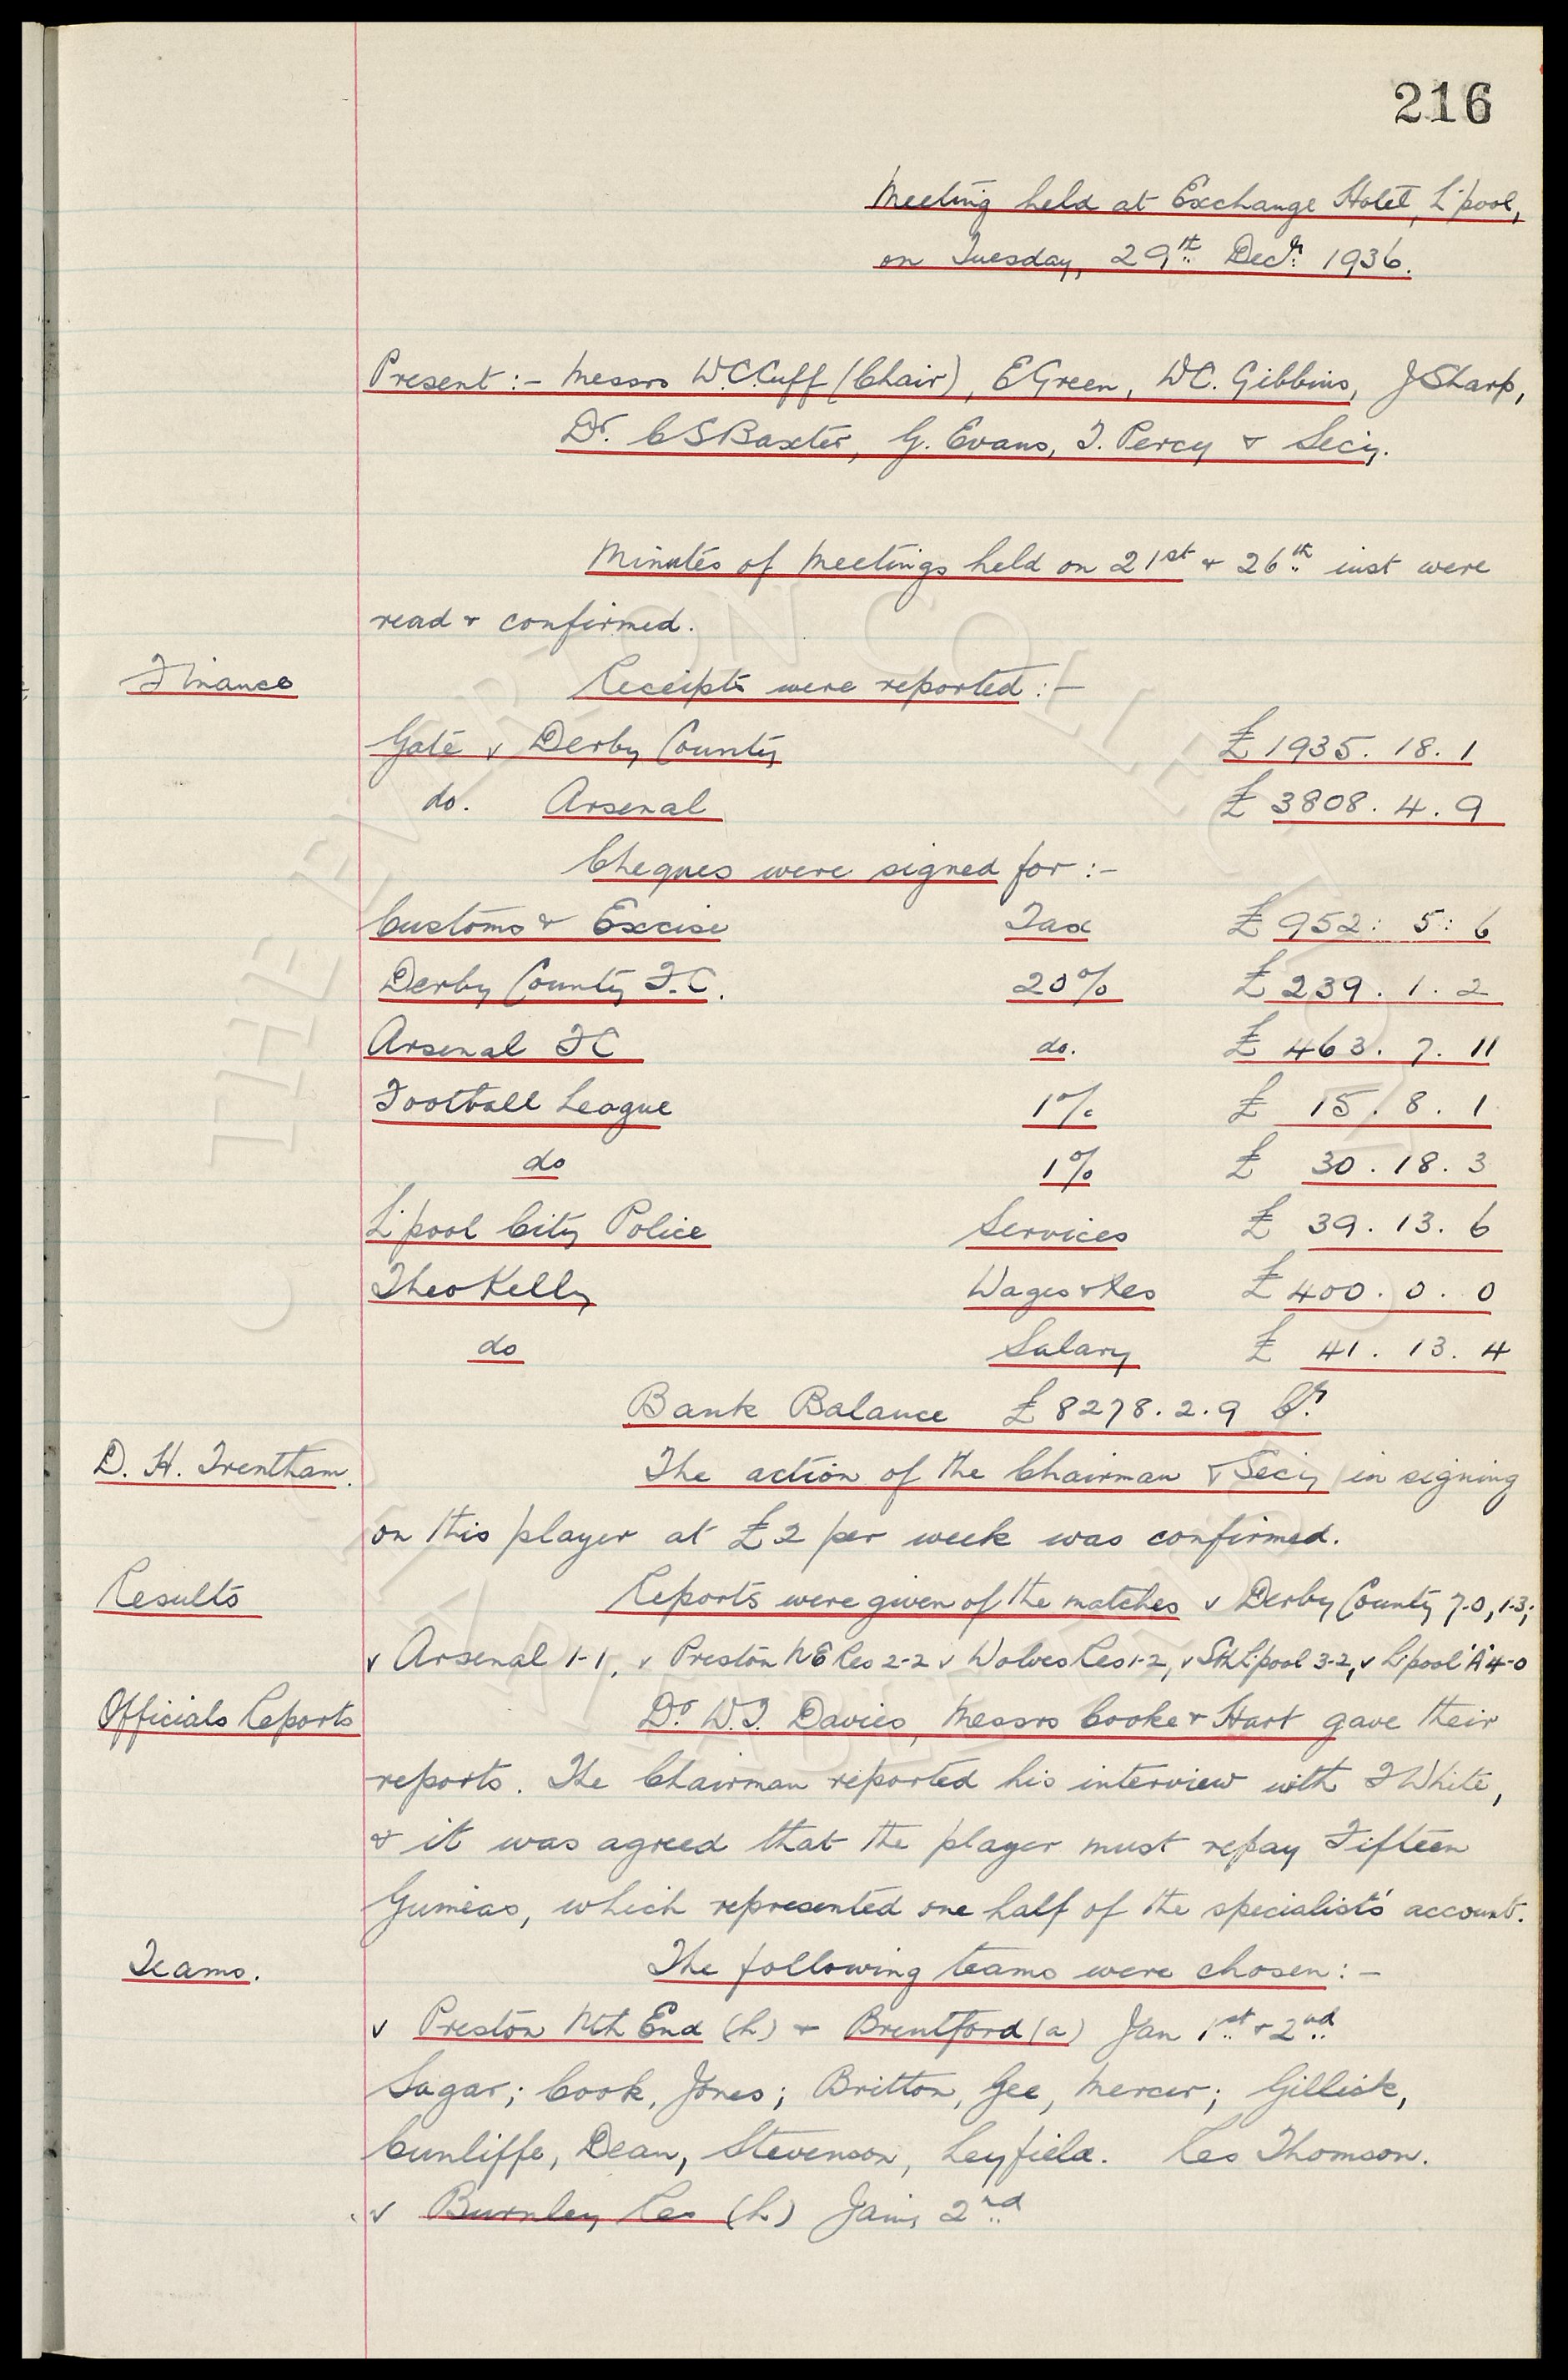 216
Meeting held at Exchange Hotel, L'pool,
on Tuesday, 29th Decr. 1936.
Present :- Messrs W.C.Cuff (Chair), E Green, W.C. Gibbins, J Sharp,
Dr. C S Baxter, G. Evans, T. Percy & Secy.
Minutes of Meetings held on 21st & 26th inst were
read & confirmed.
Finance Receipts were reported :-
Gate v Derby County £1935. 18. 1
do. Arsenal £3808. 4. 9
Cheques were signed for :-
Customs & Excise Tax £952: 5: 6
Derby County F.C. 20% £239. 1. 2
Arsenal FC do. £463. 7. 11
Football League 1% £15. 8. 1
do 1% £30. 18. 3
L'pool City Police Services £39. 13. 6
Theo Kelly Wages & Res £400. 0. 0
do Salary £41. 13. 4
Bank Balance £8278. 2. 9 Cr.
D. H. Trentham. The action of the Chairman & Secy in signing
on this player at £2 per week was confirmed.
Results Reports were given of the matches v Derby County 7-0, 1-3;
v Arsenal 1-1, v Preston N E Res 2-2 v Wolves Res 1-2, v Sth L'pool 3-2, v L'pool 'A' 4-0
Officials Reports Dr. W.T. Davies, Messrs Cooke & Hart gave their
reports. The Chairman reported his interview with T White,
& it was agreed that the player must repay Fifteen
Guineas, which represented one half of the specialist's account.
Teams. The following teams were chosen :-
v Preston Nth End (h) & Brentford (a) Jan 1st & 2nd
Sagar; Cook, Jones; Britton, Gee, Mercer; Gillick,
Cunliffe, Dean, Stevenson, Leyfield. Res Thomson.
v Burnley Res (h) Jany 2nd
THE EVERTON COLLECTION